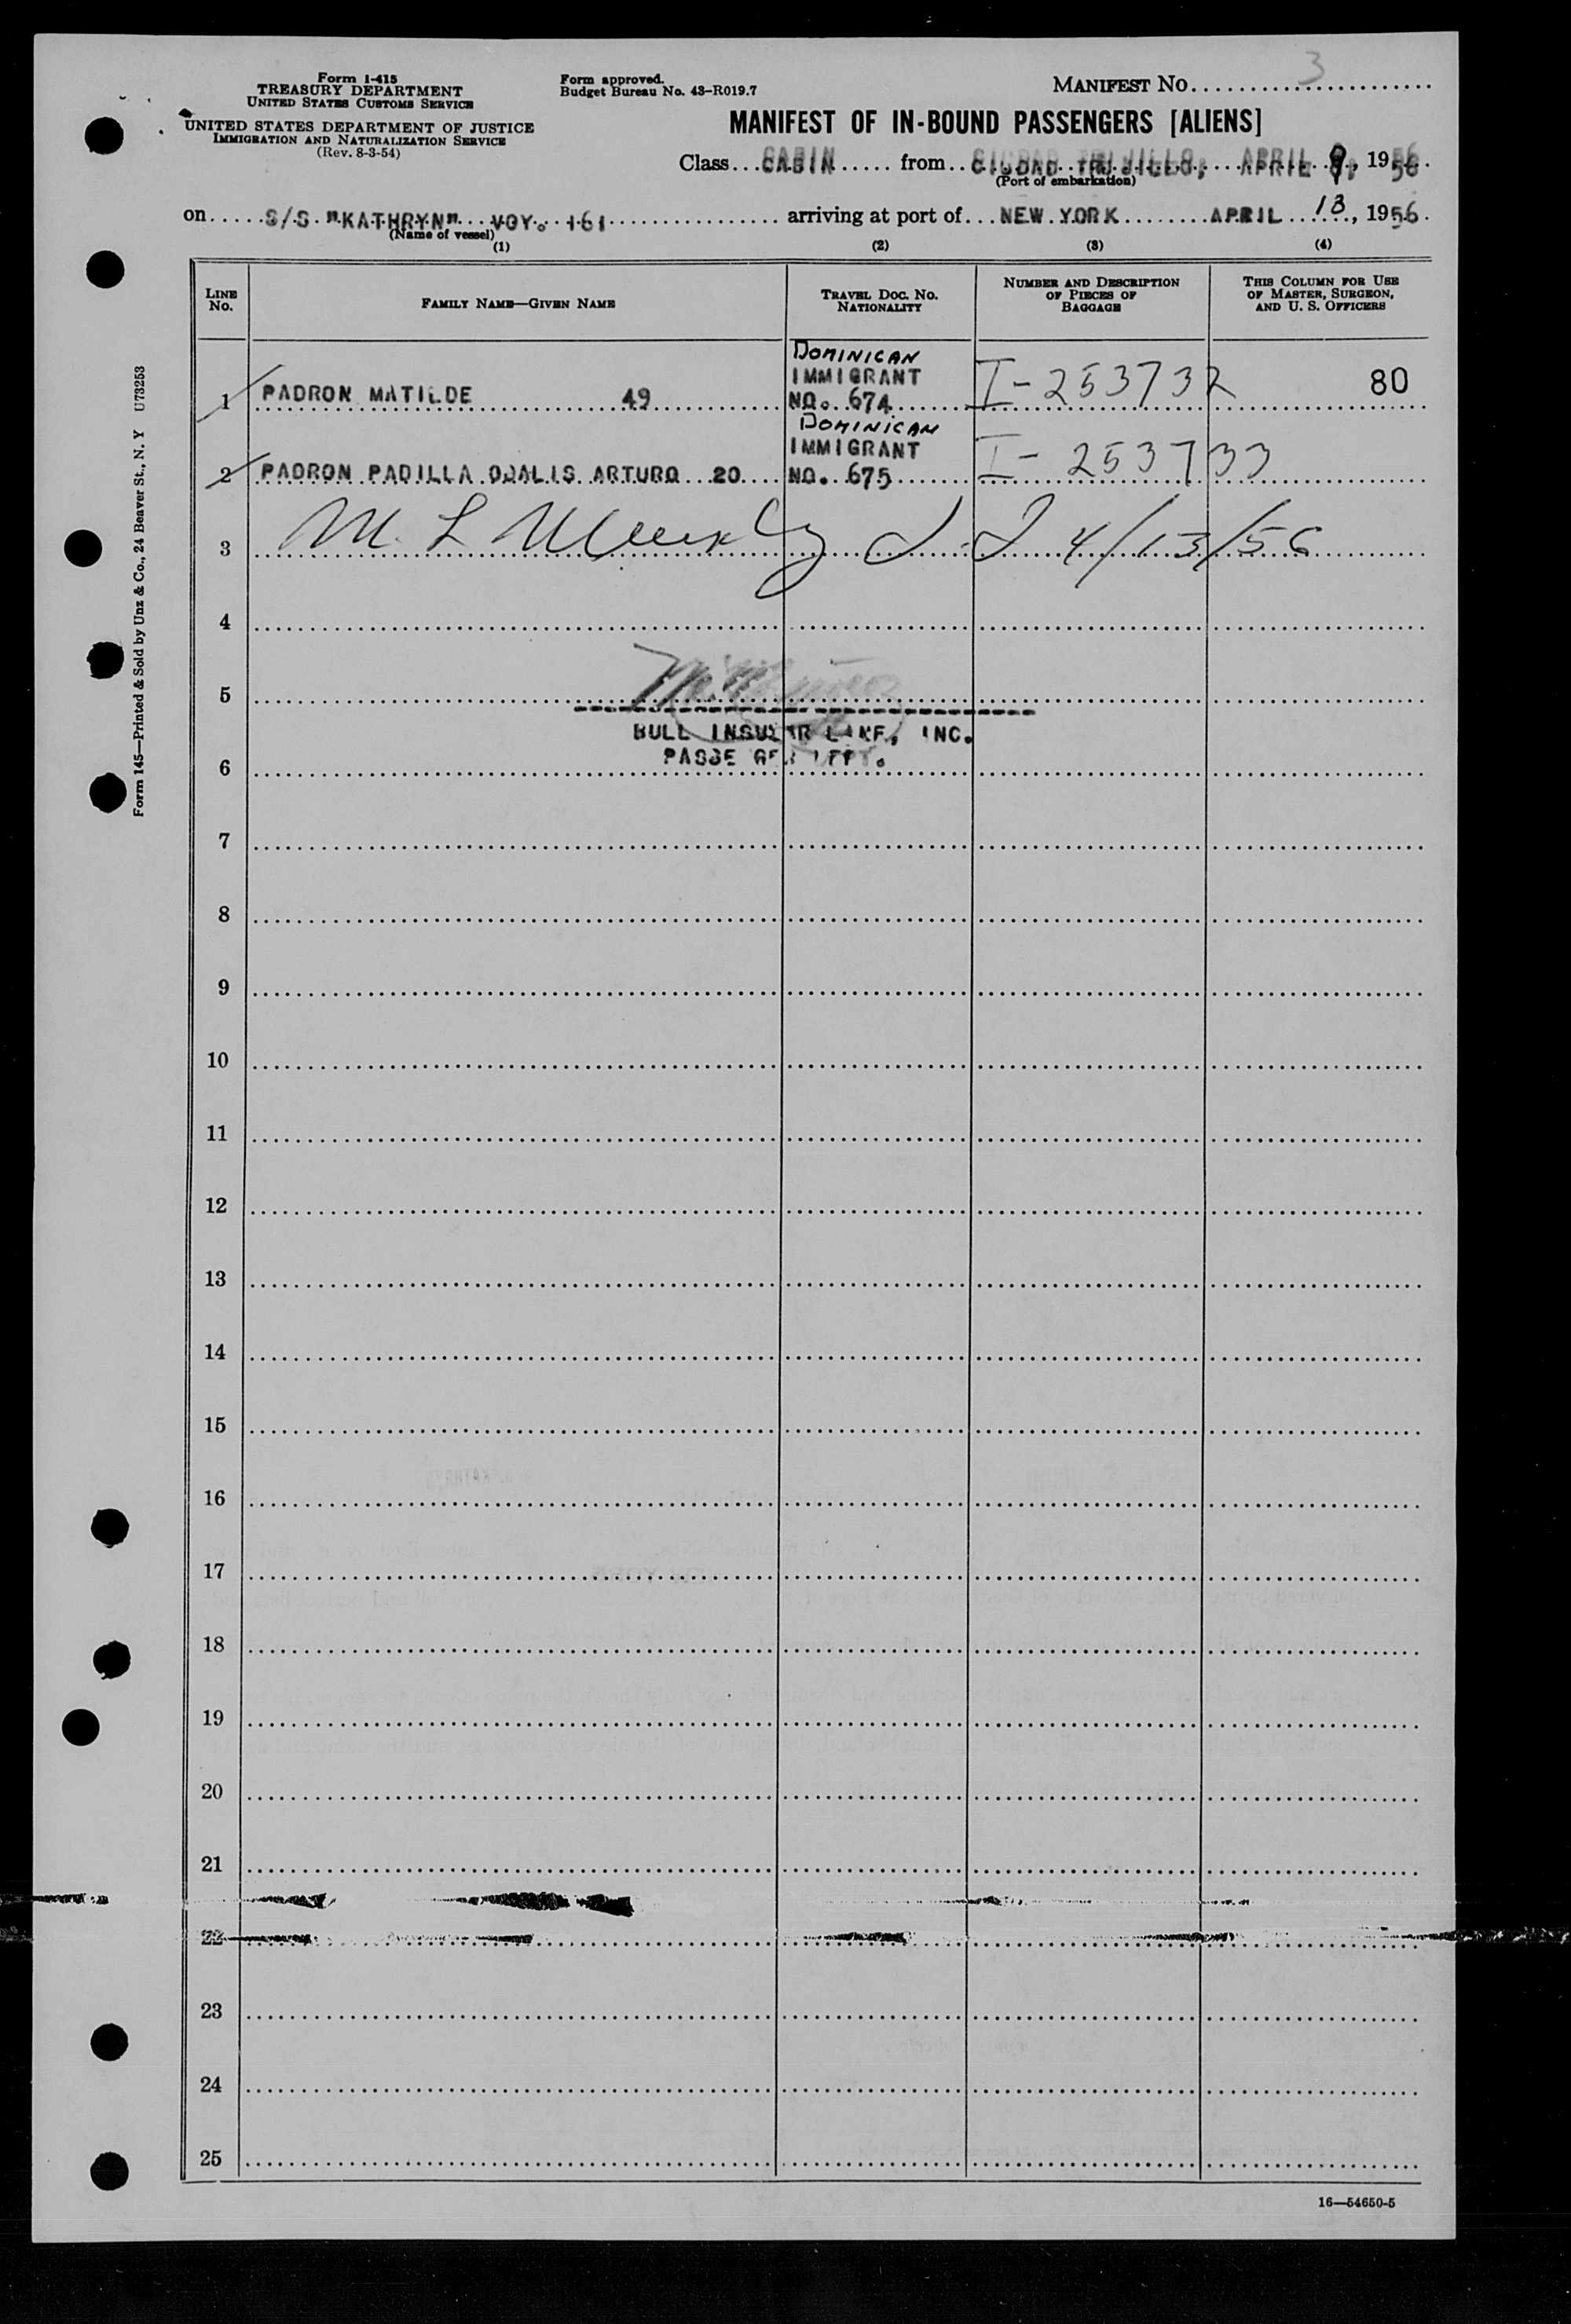 Form I-415
TREASURY DEPARTMENT
UNITED STATES CUSTOMS SERVICE
UNITED STATES DEPARTMENT OF JUSTICE
IMMIGRATION AND NATURALIZATION SERVICE
(Rev. 8-3-54)
Form approved.
Budget Bureau No. 43-R019.7
MANIFEST NO. 3
MANIFEST OF IN-BOUND PASSENGERS [ALIENS]
Class CABIN from CIUDAD TRUJILLO, APRIL 9, 1956
(Port of embarkation)
on S/S "KATHRYN" VOY. 161 arriving at port of NEW YORK APRIL 13, 1956
(Name of vessel)
(1) (2) (3) (4)
LINE NO.
FAMILY NAME—GIVEN NAME
TRAVEL DOC. NO. NATIONALITY
NUMBER AND DESCRIPTION OF PIECES OF BAGGAGE
THIS COLUMN FOR USE OF MASTER, SURGEON, AND U. S. OFFICERS
DOMINICAN
IMMIGRANT
1 PADRON MATILDE 49 NO. 674 I-253732 80
DOMINICAN
IMMIGRANT
2 PADRON PADILLA ODALIS ARTURO 20 NO. 675 I-253733
3 M. L. 4/13/56
4
5
BULL INSULAR LINE, INC.
6
7
8
9
10
11
12
13
14
15
16
17
18
19
20
21
22
23
24
25
16—54650-5
Form 145—Printed & Sold by Unz & Co., 24 Beaver St., N. Y U73253